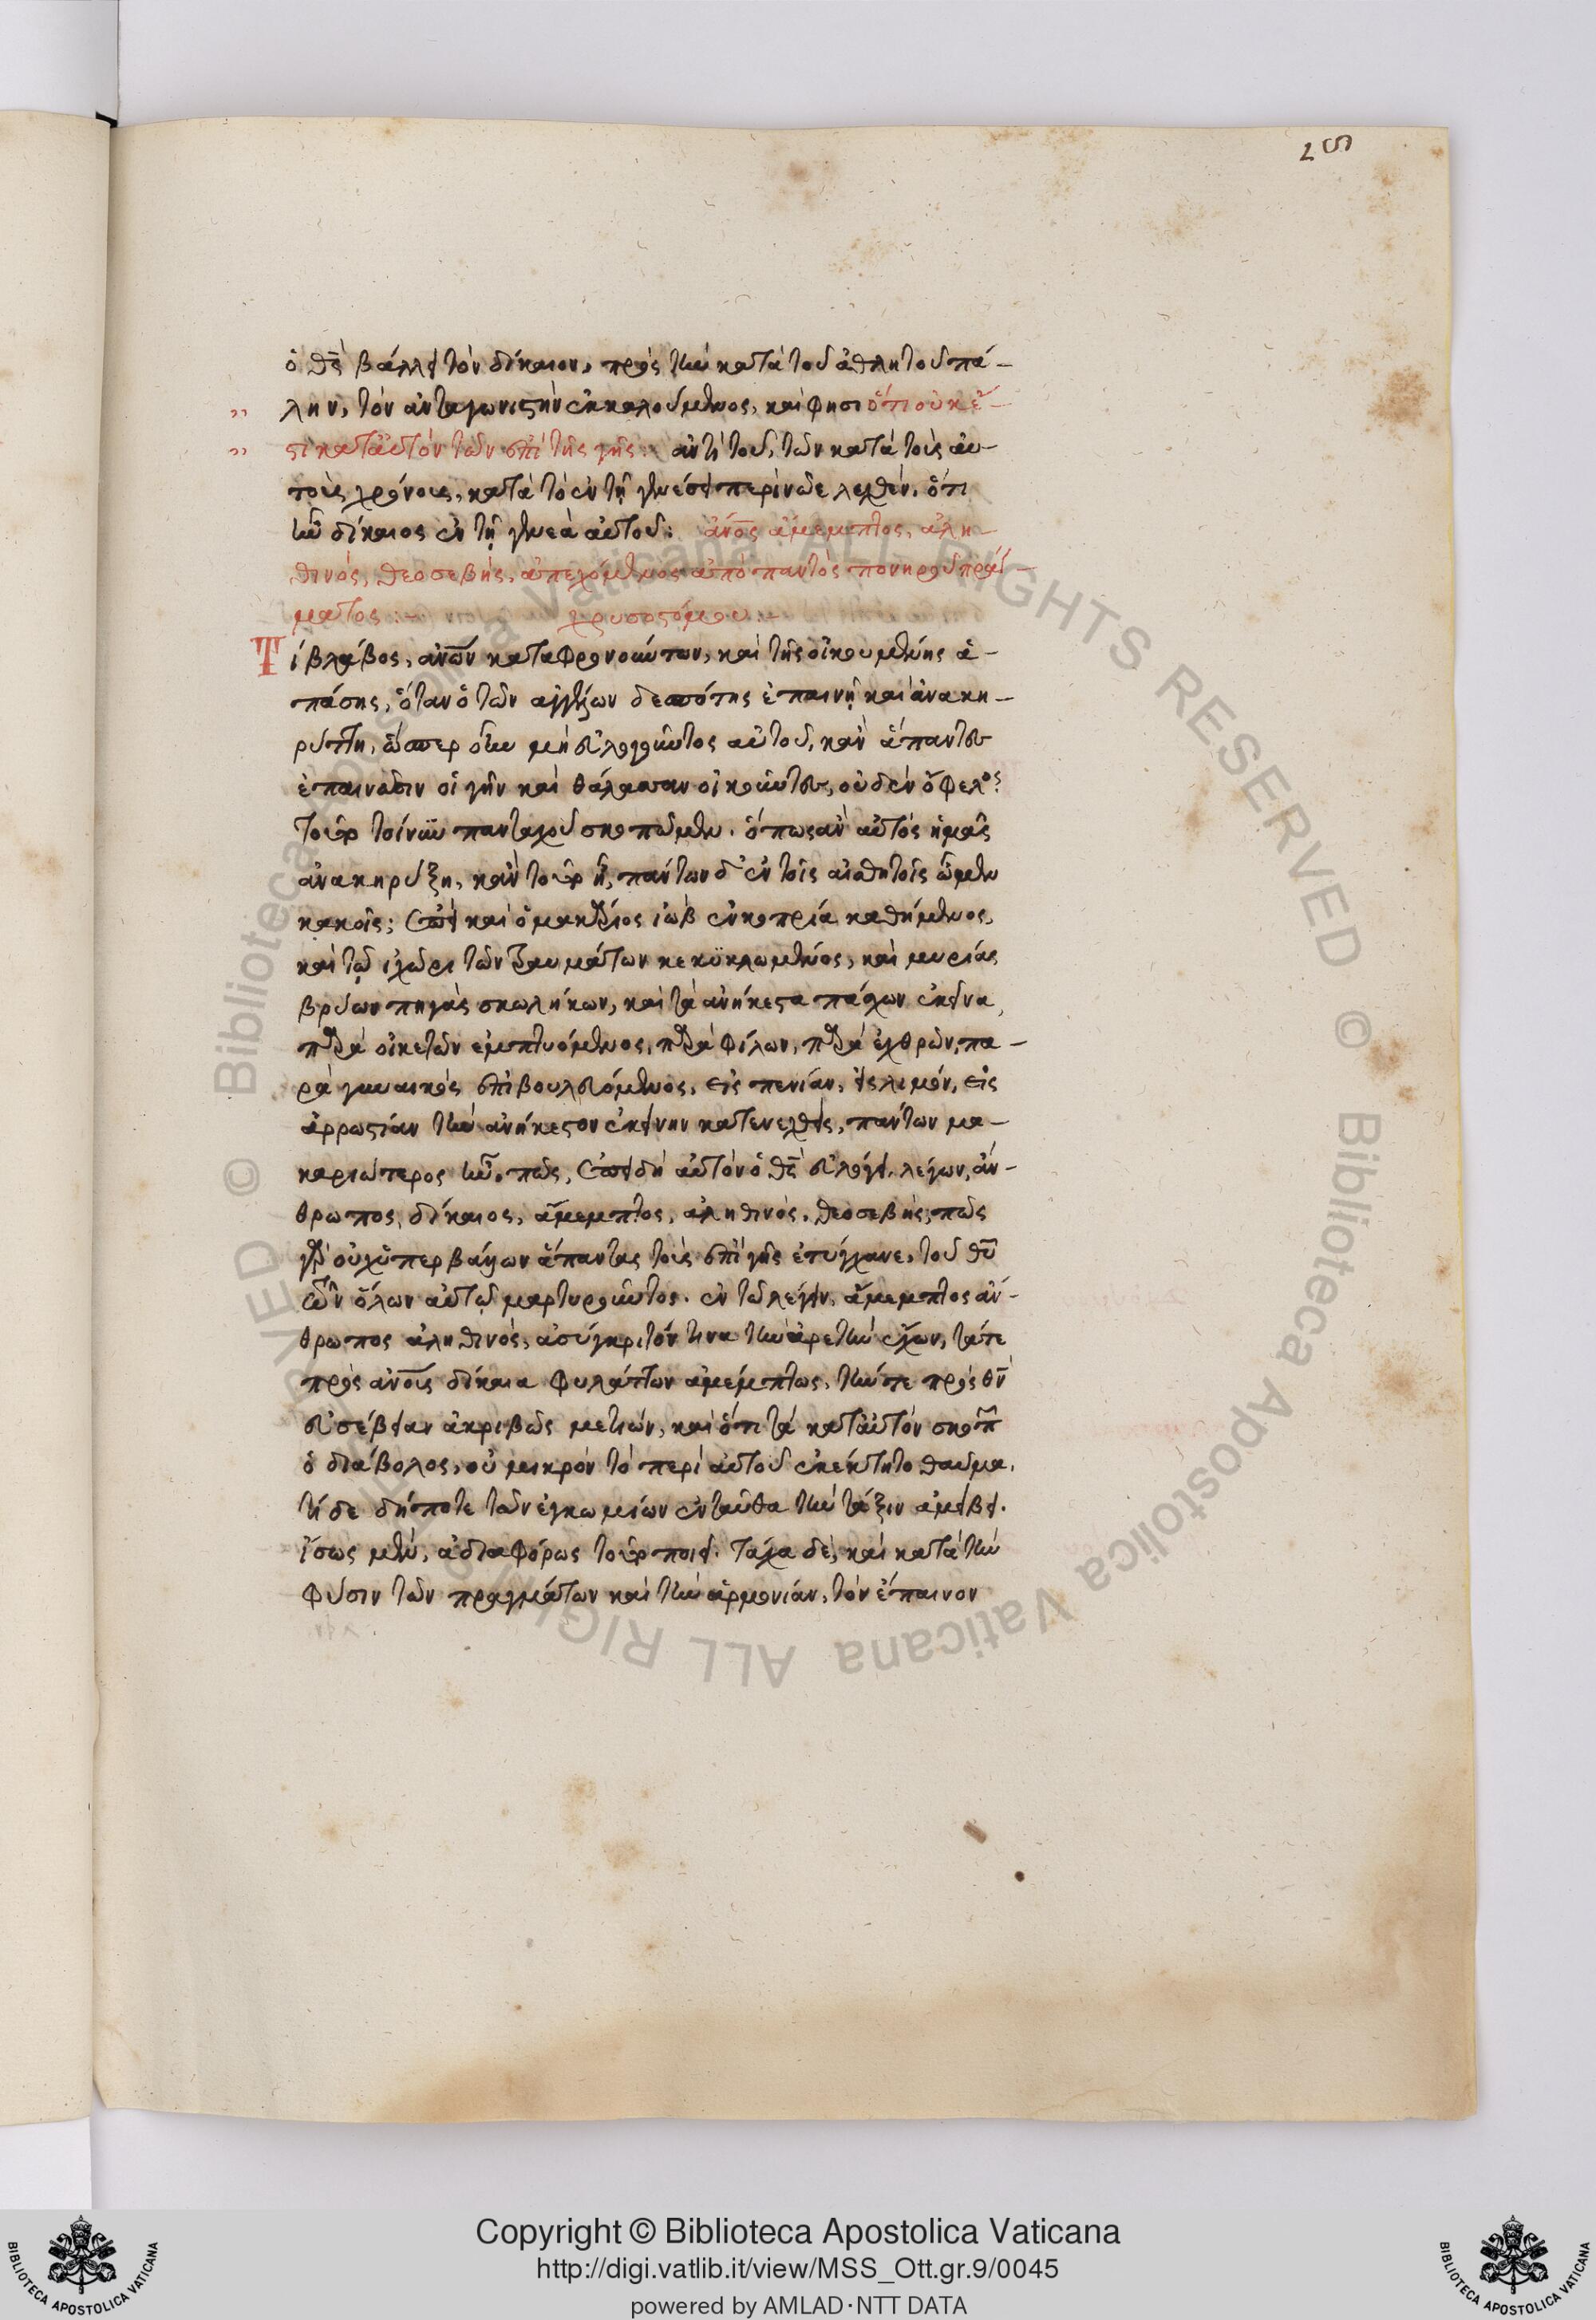 25
ὁ θς̅ βάλλει τὸν δίκαιον, πρὸς τὴν κατὰ τοῦ ἀθλητοῦ πά-
λην, τὸν ἀνταγωνιστὴν ἐκκαλούμενος, καί φησι ὅτι οὐκ ἔ-
στι κατ' αὐτὸν τῶν ἐπὶ τῆς γῆς: ἀντὶ τοῦ, τῶν κατὰ τοὺς αὐ-
τοὺς χρόνους, κατὰ τὸ ἐν τῇ γενέσει περὶ νῶε λεχθέν, ὅτι
ἦν δίκαιος ἐν τῇ γενεᾷ αὐτοῦ: ἄνο̅ς ἄμεμπτος, ἀλη-
θινός, θεοσεβής, ἀπεχόμενος ἀπὸ παντὸς πονηροῦ πράγ-
ματος:- χρυσοστόμου:-
Τί βλάβος, ἀνω̅ν καταφρονούντων, καὶ τῆς οἰκουμένης ἁ-
πάσης, ὅταν ὁ τῶν ἀγγέλων δεσπότης ἐπαινῇ καὶ ἀνακη-
ρύττη, ὥσπερ οὖν μὴ εὐλογοῦντος αὐτοῦ, κἂν ἅπαντες
ἐπαινῶσιν οἱ γῆν καὶ θάλασσαν οἰκοῦντες, οὐδὲν ὄφελος
τοῦτο τοίνυν πανταχοῦ σκοπῶμεν. ὅπως ἂν αὐτὸς ἡμᾶς
ἀνακηρύξη, κἂν τοῦτο ᾖ, πάντων δ' ἐν τοῖς αἰσθητοῖς ὦμεν
κακοῖς; ἐπεὶ καὶ ὁ μακάριος ἰὼβ ἐν κοπρία καθήμενος,
καὶ τῷ ἰχῶρι τῶν τραυμάτων κεκυκλωμένος, καὶ μυρίας
βρύων πηγὰς σκωλήκων, καὶ τὰ ἀνήκεστα πάσχων ἐκεῖνα,
παρὰ οἰκετῶν ἐμπτυόμενος, παρὰ φίλων, παρὰ ἐχθρῶν, πα-
ρὰ γυναικὸς ἐπιβουλευόμενος, εἰς πενίαν, εἰς λιμόν, εἰς
ἀρρωστίαν τὴν ἀνήκεστον ἐκείνην κατενεχθείς, πάντων μα-
καριώτερος ἦν. πῶς, ἐπειδὴ αὐτὸν ὁ θς̅ εὐλόγει. λέγων, ἄν-
θρωπος, δίκαιος, ἄμεμπτος, ἀληθινός, θεοσεβής, πῶς
γὰρ οὐχ ὑπερβάλλων ἅπαντας τοὺς ἐπὶ γῆς ἐτύγχανε, τοῦ θυ̅
τῶν ὅλων αὐτῷ μαρτυροῦντος. ἐν τῶ λέγειν, ἄμεμπτος ἄν-
θρωπος ἀληθινός, ἀσύγκριτόν τινα τὴν ἀρετὴν ἔχων, τά τε
πρὸς ἀνο̅υς δίκαια φυλάττων ἀμέμπτως, τήν τε πρὸς θν̅
εὐσέβειαν ἀκριβῶς μετιών, καὶ ὅτι τὰ κατ' αὐτὸν σκοπεῖ
ὁ διάβολος, οὐ μικρὸν τὸ περὶ αὐτοῦ ἐκέκτητο θαῦμα.
τί δε δήποτε τῶν ἐγκωμίων ἐνταῦθα τὴν τάξιν ἀμείβει.
ἴσως μέν, ἀδιαφόρως τοῦτο ποιεῖ. τάχα δέ, καὶ κατὰ τὴν
φύσιν τῶν πραγμάτων καὶ τὴν ἁρμονίαν, τὸν ἔπαινον
© Biblioteca Apostolica Vaticana ALL RIGHTS RESERVED © Biblioteca Apostolica Vaticana ALL RIGHTS RESERVED
Copyright © Biblioteca Apostolica Vaticana
http://digi.vatlib.it/view/MSS_Ott.gr.9/0045
powered by AMLAD·NTT DATA
BIBLIOTECA APOSTOLICA VATICANA
BIBLIOTECA APOSTOLICA VATICANA